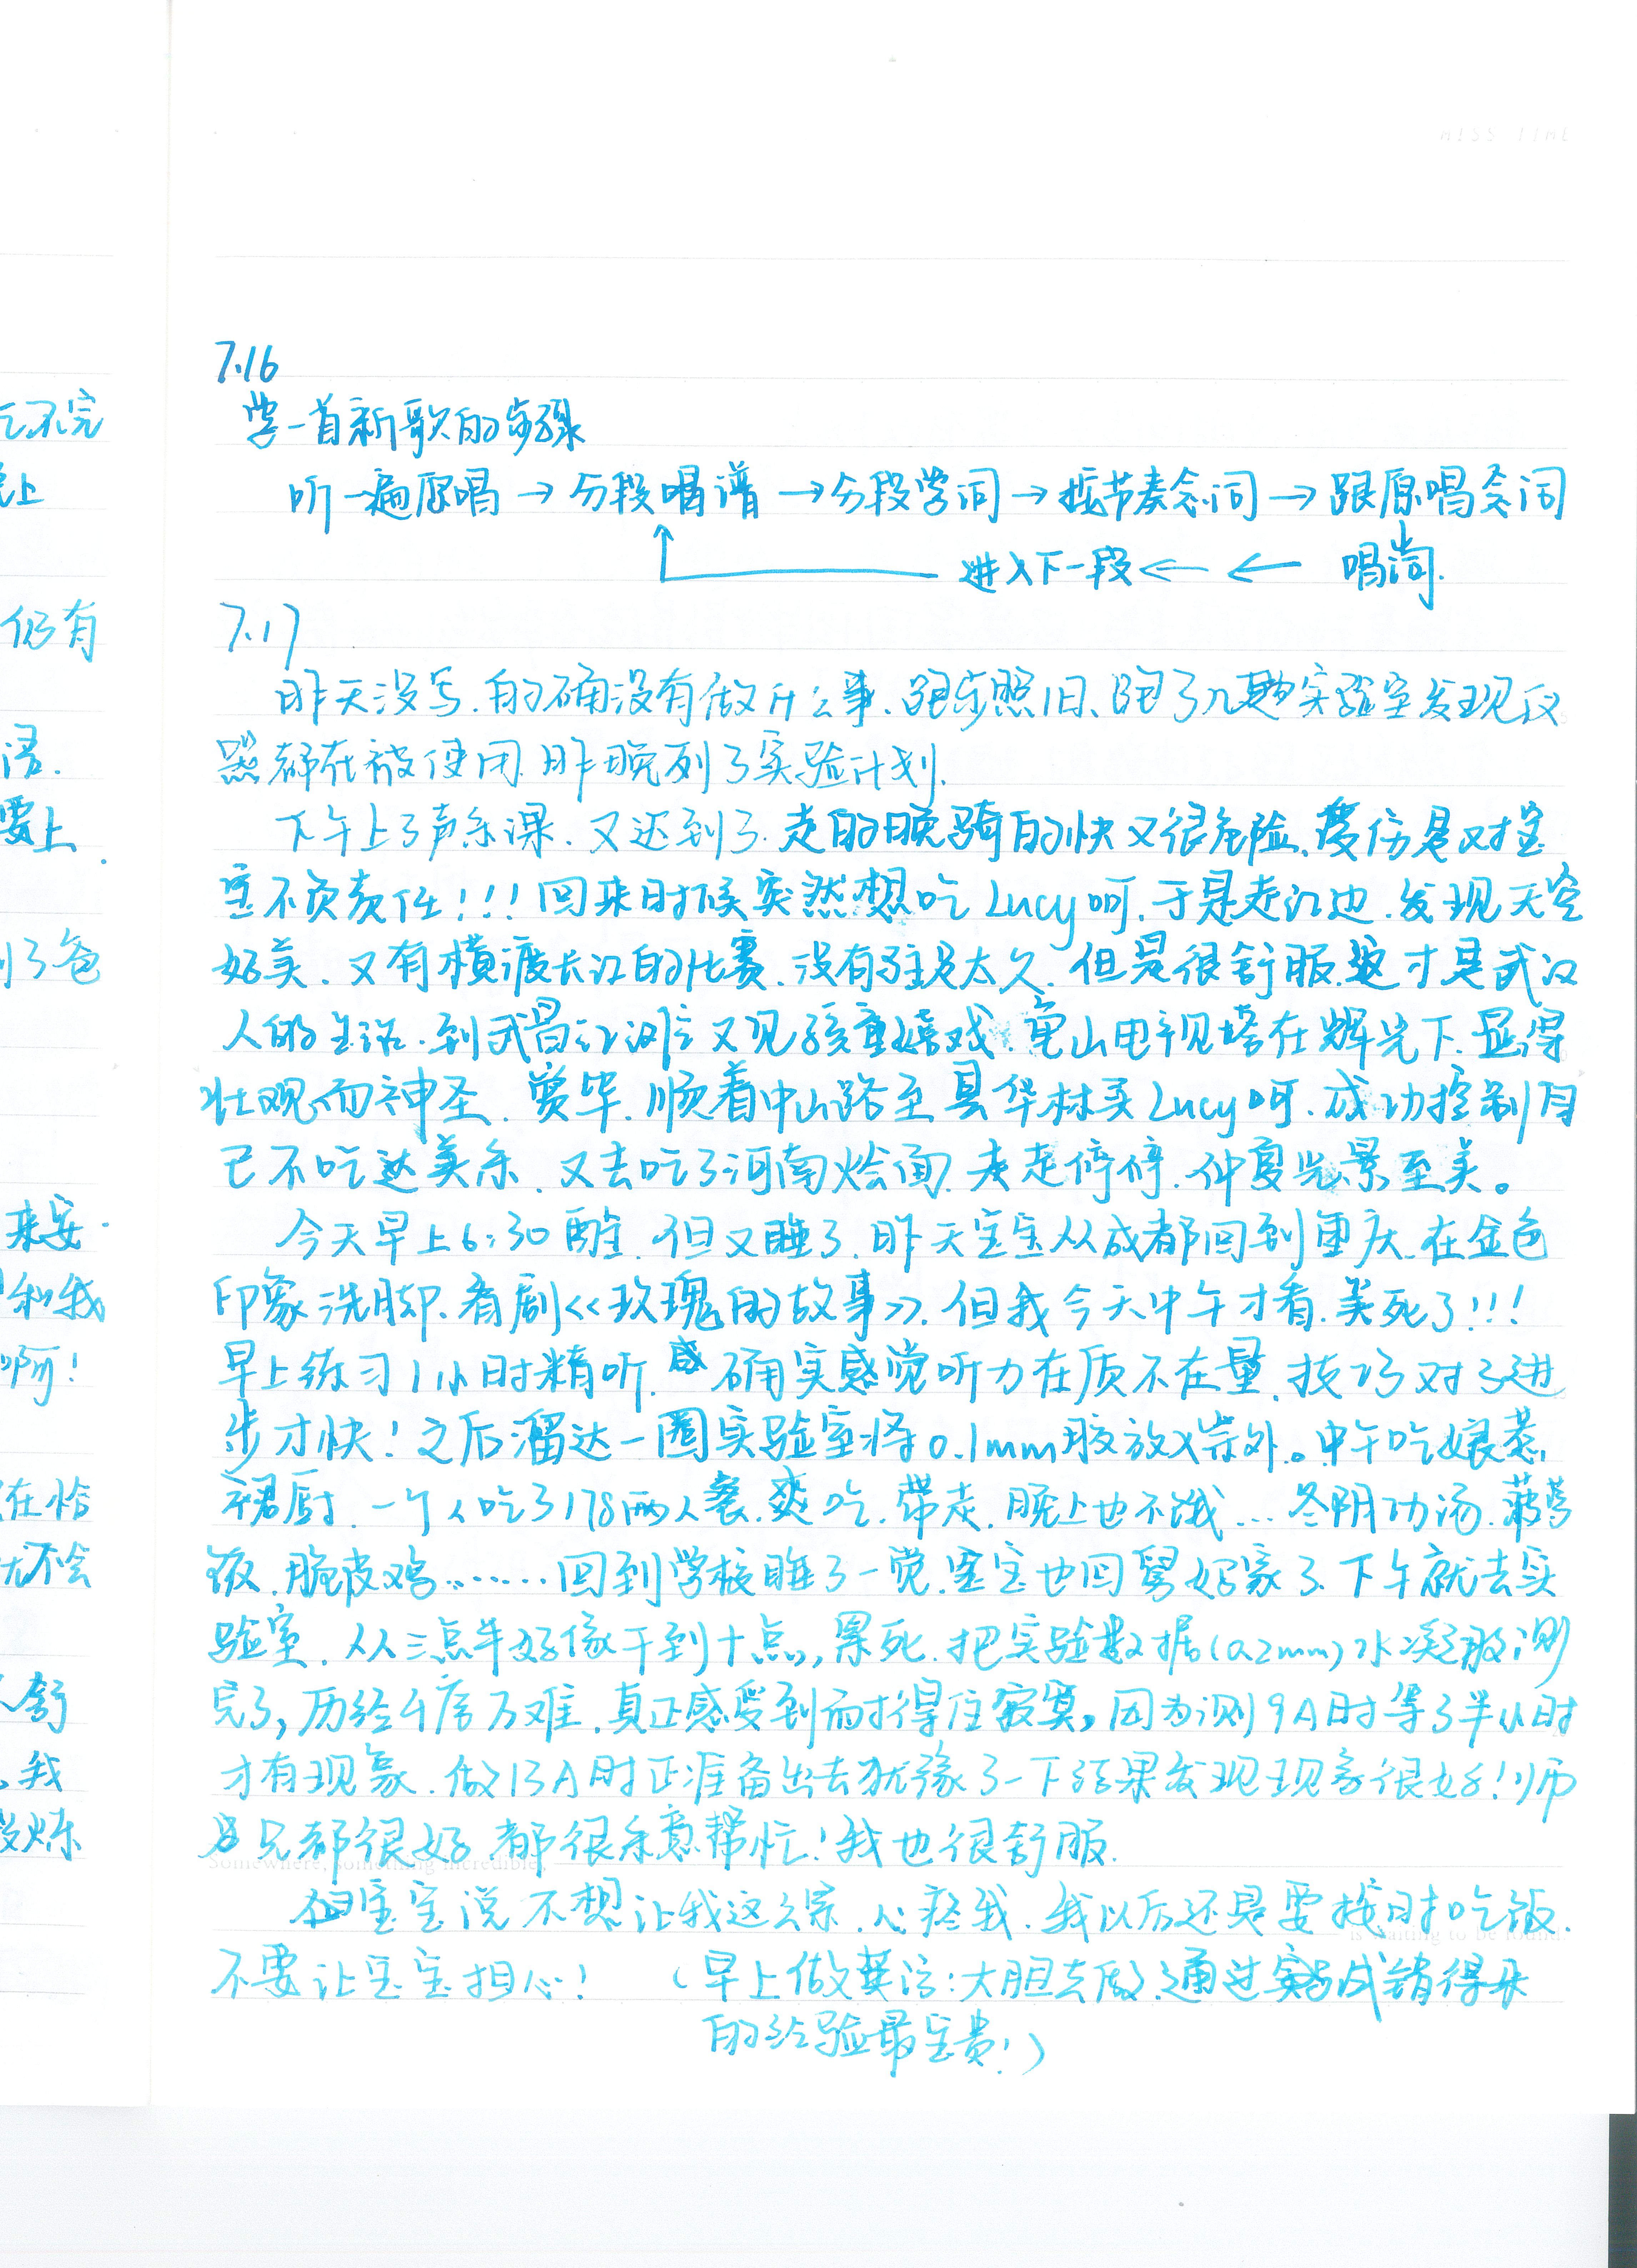 7.16
学一首新歌的步骤
听一遍原唱→分段唱谱→分段学词→按节奏念词→跟原唱念词
进入下一段← ← 唱词.
7.17
昨天没写.的确没有做什么事.跑步照旧、跑了几趟实验室发现仪
器都在被使用.昨晚列了实验计划.
下午上了声乐课.又迟到了.走的晚骑的快又很危险、受伤是对宝
宝不负责任!!!回来时候突然想吃Lucy呵.于是走江边.发现天空
好美.又有横渡长江的比赛.没有驻足太久.但是很舒服.这才是武汉
人的生活.到武昌江滩又见孩童嬉戏.龟山电视塔在辉光下.显得
壮观而神圣.赏毕.顺着中山路至昙华林买Lucy呵.成功控制自
己不吃达美乐.又去吃了河南烩面.走走停停.仲夏光景至美。
今天早上6:30醒.但又睡了.昨天宝宝从成都回到重庆.在金色
印象洗脚.看剧<<玫瑰的故事>>.但我今天中午才看.美死了!!!
早上练习1小时精听.确实感觉听力在质不在量.技巧对了进
步才快!之后溜达一圈实验室将0.1mm胶放入帘外。中午吃娘惹
裙厨.一个人吃了178两人套.爽吃.带走.晚上也不饿...冬阴功汤.菠萝
饭.脆皮鸡.......回到学校睡了一觉.宝宝也回舅妈家了.下午就去实
验室.从三点半好像干到十点,累死.把实验数据(0.2mm)水凝胶测
完了,历经千辛万难.真正感受到耐得住寂寞,因为测9A时等了半小时
才有现象.做13A时正准备出去犹豫了一下结果发现现象很好!师
兄都很好都很乐意帮忙!我也很舒服.
但宝宝说不想让我这么累.心疼我.我以后还是要按时吃饭.
不要让宝宝担心! (早上做英语:大胆去做.通过实践成错得来
的经验最宝贵!)